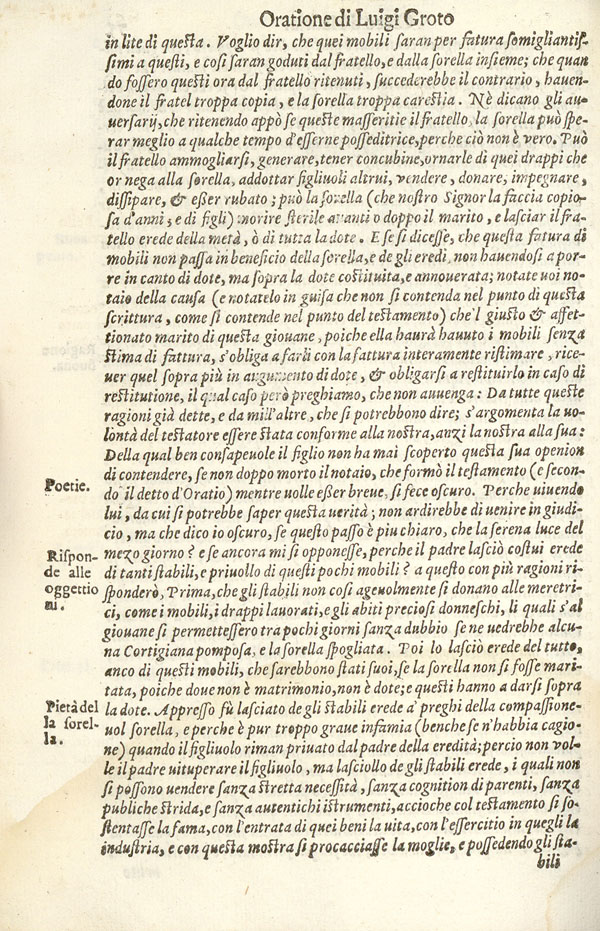 Oratione di Luigi Groto
in lite di questa. Voglio dir, che quei mobili saran per fatura somigliantis-
simi a questi, e così saran goduti dal fratello, e dalla sorella insieme; che quan
do fossero questi ora dal fratello ritenuti, succederebbe il contrario, hauen-
done il fratel troppa copia, e la sorella troppa carestia. Nè dicano gli au-
uersarij, che ritenendo appò se queste masseritie il fratello, la sorella può spe-
rar meglio a qualche tempo d'esserne posseditrice, perche ciò non è vero. Può
il fratello ammogliarsi, generare, tener concubine, ornarle di quei drappi che
or nega alla sorella, addottar figliuoli altrui, vendere, donare, impegnare,
dissipare, & eßer rubato; può la sorella (che nostro Signor la faccia copio-
sa d'anni, e di figli) morire sterile auanti o doppo il marito, e lasciar il fra-
tello erede della metà, ò di tutta la dote. E se si dicesse, che questa fatura di
mobili non passa in beneficio della sorella, e de gli eredi, non hauendosi a por-
re in canto di dote, ma sopra la dote costituita, e annouerata; notate uoi no-
taio della causa (e notatelo in guisa che non si contenda nel punto di questa
scrittura, come si contende nel punto del testamento) che'l giusto & affet-
tionato marito di questa giouane, poiche ella haurà hauuto i mobili senza
stima di fattura, s'obliga a farli con la fattura interamente ristimare, rice-
uer quel sopra più in argumento di dote, & obligarsi a restituirlo in caso di
restitutione, il qual caso però preghiamo, che non auuenga: Da tutte queste
ragioni già dette, e da mill'altre, che si potrebbono dire; s'argomenta la uo-
lontà del testatore essere stata conforme alla nostra, anzi la nostra alla sua:
Della qual ben consapeuole il figlio non ha mai scoperto questa sua openion
di contendere, se non doppo morto il notaio, che formò il testamento (e secon-
Poetie.
do il detto d'Oratio) mentre uolle eßer breue, si fece oscuro. Perche uiuendo
lui, da cui si potrebbe saper questa uerità; non ardirebbe di uenire in giudi-
cio, ma che dico io oscuro, se questo passo è piu chiaro, che la serena luce del
Rispon-
mezo giorno? e se ancora mi si opponesse, perche il padre lasciò costui erede
de alle
di tanti stabili, e priuollo di questi pochi mobili? a questo con più ragioni ri-
oggettio
sponderò, Prima, che gli stabili non così ageuolmente si donano alle meretri-
ni.
ci, come i mobili, i drappi lauorati, e gli abiti preciosi donneschi, li quali s'al
giouane si permettessero tra pochi giorni sanza dubbio se ne uedrebbe alcu-
na Cortigiana pomposa, e la sorella spogliata. Poi lo lasciò erede del tutto,
anco di questi mobili, che sarebbono stati suoi, se la sorella non si fosse mari-
tata, poiche doue non è matrimonio, non è dote; e questi hanno a darsi sopra
Pietà del
la dote. Appresso fù lasciato de gli stabili erede a' preghi della compassione-
la sorel-
uol sorella, e perche è pur troppo graue infamia (benche se n'habbia cagio-
la.
ne) quando il figliuolo riman priuato dal padre della eredità; percio non vol-
le il padre uituperare il figliuolo, ma lasciollo de gli stabili erede, i quali non
si possono uendere sanza stretta necessità, sanza cognition di parenti, sanza
publiche strida, e sanza autentichi istrumenti, accioche col testamento si so-
stentasse la fama, con l'entrata di quei beni la uita, con l'essercitio in quegli la
industria, e con questa mostra si procacciasse la moglie, e possedendo gli sta-
bili